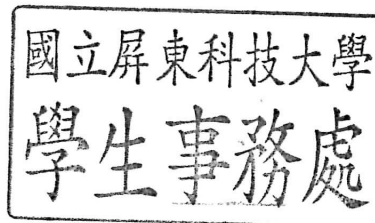 國立屏東科技大學
學生事務處